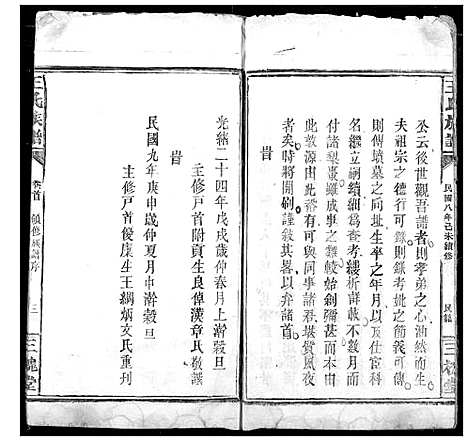 王氏族譜
民國八年己未續修
三槐堂
公云後世觀吾譜者則孝弟之心油然而生
夫祖宗之德行可錄則錄考妣之節義可傳
則傳墳墓之同址生卒之年月以及
名繼立嗣續細為查考縷析詳載不數月而
付諸梨棗雖成事之難較始創彌甚而
此敦源由此可與同事諸君堪質夙夜
者矣時將開刷謹敘其畧以弁諸首
旹
光緒二十四年戊戌歲仲春月上澣穀旦
主修戶首附貢生良倬漢章氏敬譔
旹
民國九年庚申歲仲夏月中澣穀旦
主修戶首優廩生王綱炳文氏重刋
王氏族譜
卷首
續修族譜序
三
三槐堂